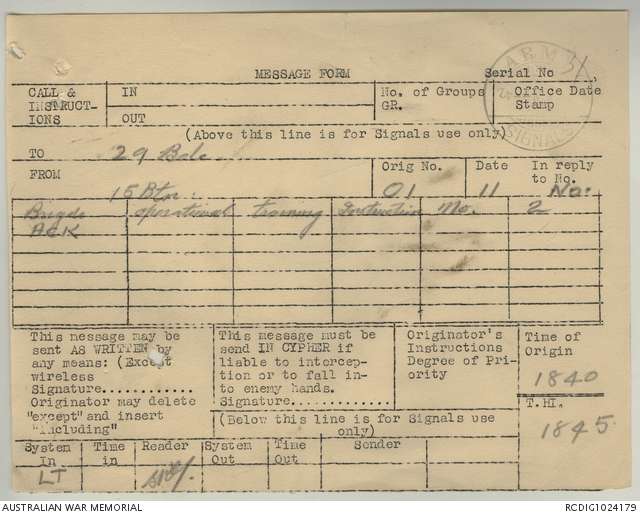 MESSAGE FORM Serial No 31.
ARMY SIGNALS
CALL & INSTRUCT-IONS IN OUT No. of Groups GR. Office Date Stamp
(Above this line is for Signals use only)
TO 29 Bde.
FROM 15 Btn. Orig No. O1 Date 11 In reply to No. No:
Brigde operational training Instruction No. 2
ACK
This message may be
sent AS WRITTEN by
any means: (Except
wireless
Signature.............
Originator may delete
"except" and insert
"including"
This message must be
send IN CYPHER if
liable to intercep-
tion or to fall in-
to enemy hands.
Signature.............
Originator's
Instructions
Degree of Pri-
ority
Time of
Origin
1840
T.HI.
1845.
(Below this line is for Signals use
only)
System In Time in Reader System Out Time Out Sender
LT
AUSTRALIAN WAR MEMORIAL RCDIG1024179